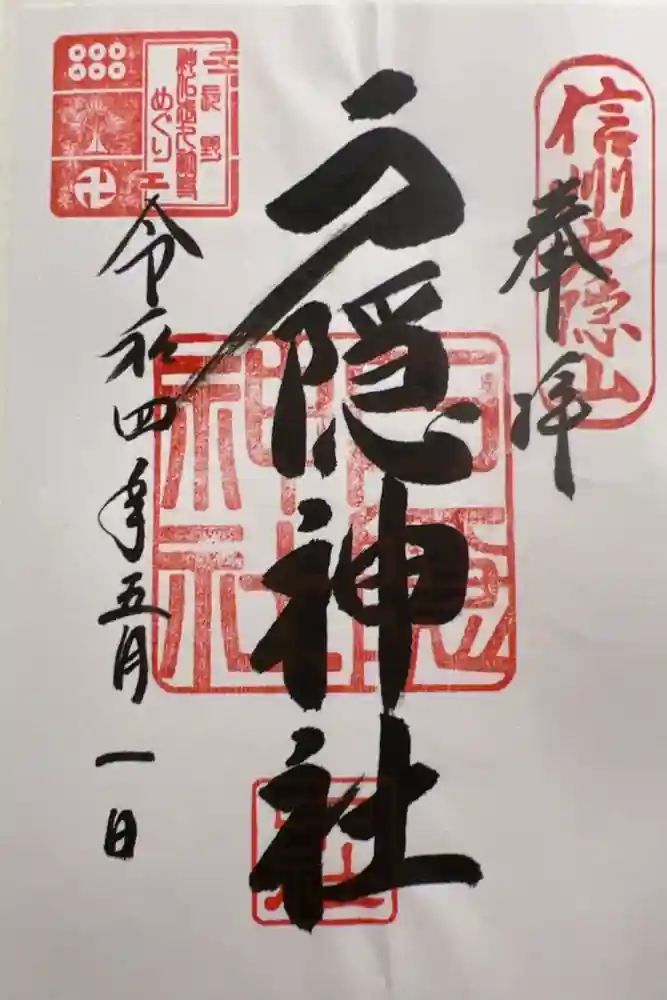 信州戸隠山
奉拝
戸隠神社
戸隠
神社
令和四年五月一日
長野
めぐり